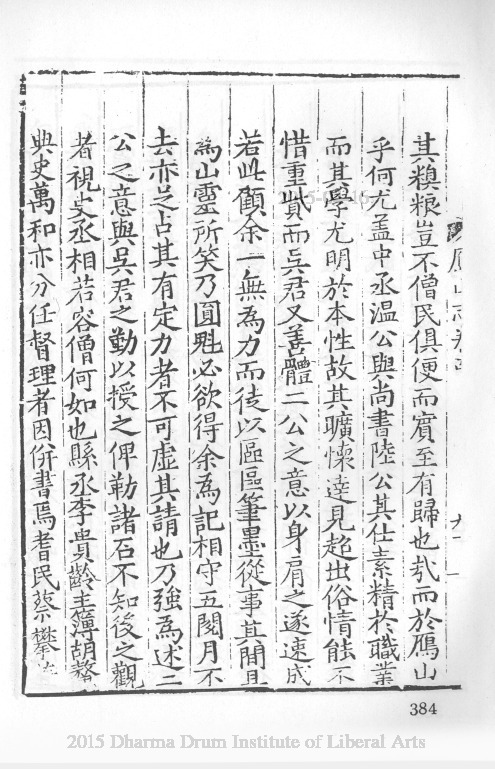 其糗粮豈不僧民俱便而賓至有歸也哉而於鴈山
乎何尤盖中丞温公與尚書陸公其仕素精於職業
而其學尤明於本性故其曠懷逹見超出俗情能不
惜重貲而吳君又善體二公之意以身肩之遂速成
若此顧余一無為力而徒以區區筆墨從事其間且
為山靈所笑乃圓魁必欲得余為記相守五閱月不
去亦足占其有定力者不可虚其請也乃強為述二
公之意與吳君之勤以授之俾勒諸石不知後之觀
者視史丞相若容僧何如也縣丞李貴齡主簿胡
典史萬和亦分任督理者因併書焉耆民蔡攀
384
2015 Dharma Drum Institute of Liberal Arts